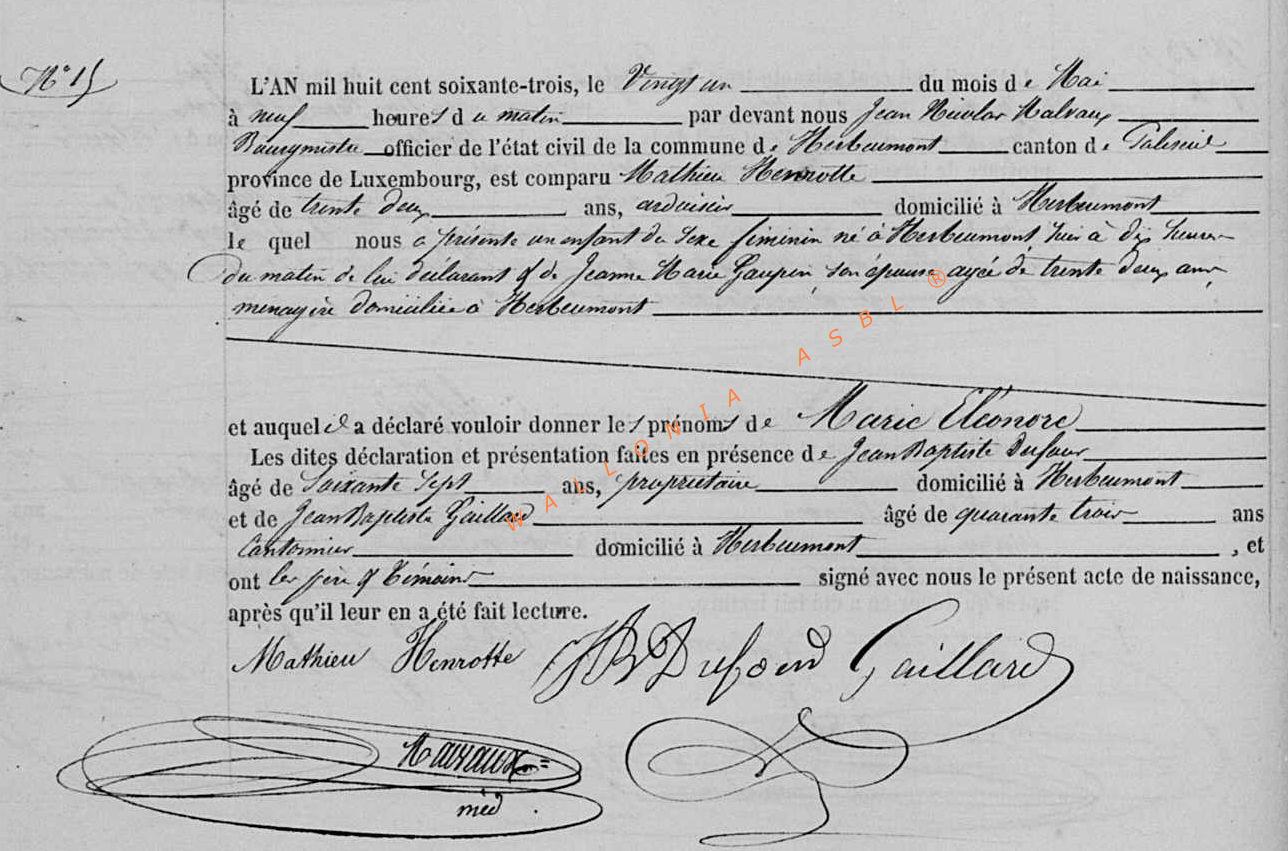 N° 15
L'AN mil huit cent soixante-trois, le Vingt un du mois de Mai
à neuf heures du matin par devant nous Jean Nicolas Malvaux
Bourgmestre officier de l'état civil de la commune de Herbeumont canton de Paliseul
province de Luxembourg, est comparu Mathieu Henrotte
âgé de trente deux ans, ardoisier domicilié à Herbeumont
le quel nous a présenté un enfant du sexe féminin né à Herbeumont, hier à dix heures
du matin de lui déclarant & de Jeanne Marie Gaupin, son épouse agée de trente deux ans,
menagère domiciliée à Herbeumont
et auquel il a déclaré vouloir donner les prénoms de Marie Eléonore
Les dites déclaration et présentation faites en présence de Jean Baptiste Dufour
âgé de soixante sept ans, propriétaire domicilié à Herbeumont
et de Jean Baptiste Gaillard âgé de quarante trois ans
Cantonnier domicilié à Herbeumont, et
ont les père & témoins signé avec nous le présent acte de naissance,
après qu'il leur en a été fait lecture.
Mathieu Henrotte JB Dufour Gaillard
Malvaux
méd
WALLONIA ASBL ®